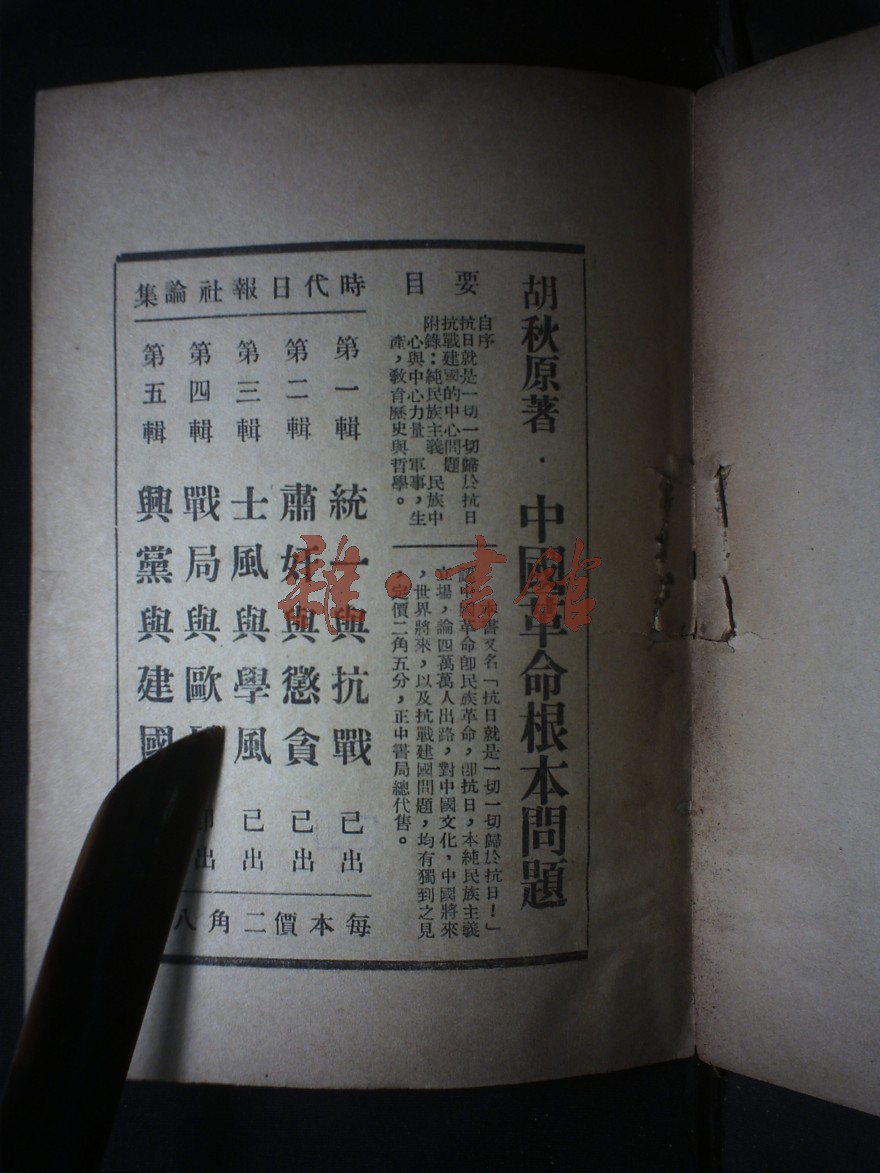 胡秋原著·中國革命根本問題
要目
自序
抗日就是一切一切歸於抗日
抗戰建國的中心問題
附錄：純民族主義 民族中
心與中心力量 軍事，生
產，教育歷史與哲學。
書又名「抗日就是一切一切歸於抗日！」
中國革命卽民族革命，卽抗日，本純民族主義
立場，論四萬萬人出路，對中國文化，中國將來
，世界將來，以及抗戰建國問題，均有獨到之見
。定價二角五分，正中書局總代售。
時代日報社論集
第一輯 統一與抗戰 已出
第二輯 肅奸與懲貪 已出
第三輯 士風與學風 已出
第四輯 戰局與歐 卽出
第五輯 興黨與建國
每本價二角八
雜·書館